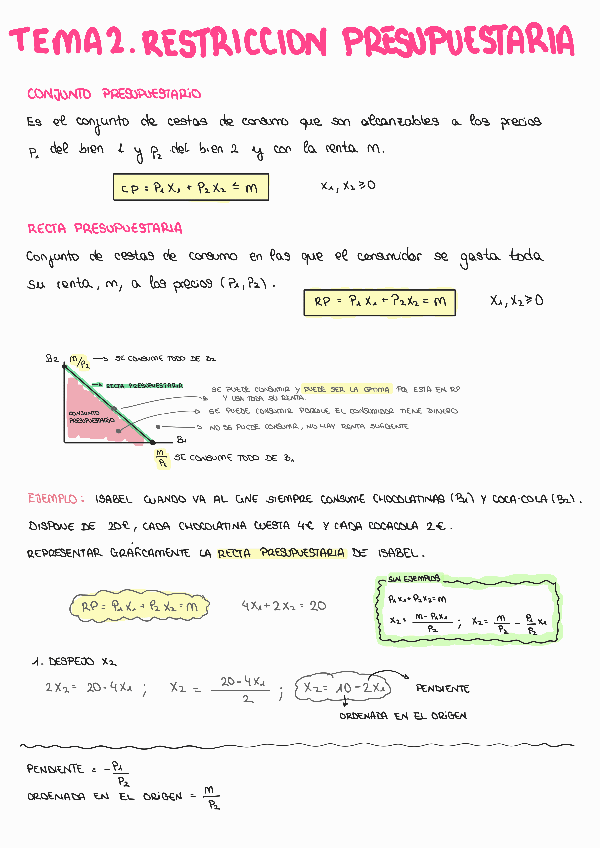 TEMA 2. RESTRICCION PRESUPUESTARIA
CONJUNTO PRESUPUESTARIO
Es el conjunto de cestas de consumo que son alcanzables a los precios
P₁ del bien 1 y P₂ del bien 2 y con la renta m.
CP = P₁X₁ + P₂X₂ ≤ m
X₁, X₂ ≥ 0
RECTA PRESUPUESTARIA
Conjunto de cestas de consumo en las que el consumidor se gasta toda
su renta, m, a los precios (P₁, P₂).
RP = P₁X₁ + P₂X₂ = m
X₁, X₂ ≥ 0
B₂ m/P₂ → SE CONSUME TODO DE B₂
→ RECTA PRESUPUESTARIA
SE PUEDE CONSUMIR Y PUEDE SER LA OPTIMA PQ ESTA EN RP
Y USA TODA SU RENTA.
CONJUNTO
PRESUPUESTARIO
SE PUEDE CONSUMIR PORQUE EL CONSUMIDOR TIENE DINERO
NO SE PUEDE CONSUMIR, NO HAY RENTA SUFICIENTE
B₁
m/P₁ SE CONSUME TODO DE B₁
EJEMPLO: ISABEL CUANDO VA AL CINE SIEMPRE CONSUME CHOCOLATINAS (B₁) Y COCA-COLA (B₂).
DISPONE DE 20€, CADA CHOCOLATINA CUESTA 4€ Y CADA COCACOLA 2€.
REPRESENTAR GRÁFICAMENTE LA RECTA PRESUPUESTARIA DE ISABEL.
RP = P₁X₁ + P₂X₂ = m
4X₁ + 2X₂ = 20
SIN EJEMPLOS
P₁X₁ + P₂X₂ = m
X₂ = m - P₁X₁/P₂ ; X₂ = m/P₂ - P₁/P₂ X₁
1. DESPEJO X₂
2X₂ = 20 - 4X₁ ; X₂ = 20 - 4X₁/2 ; X₂ = 10 - 2X₁ PENDIENTE
ORDENADA EN EL ORIGEN
PENDIENTE = - P₁/P₂
ORDENADA EN EL ORIGEN = m/P₂